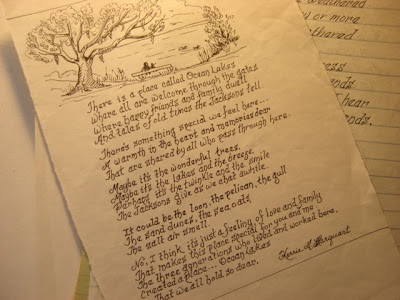 There is a place called Ocean Lakes
Where all are welcome through the gates
Where happy friends and family dwell
And tales of old times the Jacksons tell.
There's something special we feel here...
A warmth in the heart and memories dear
That are shared by all who pass through here.
Maybe it's the wonderful trees.
Maybe it's the lakes and the breeze.
Perhaps it's the twinkle and the smile
The Jacksons give as we chat awhile.
It could be the loon, the pelican, the gull
The sand dunes, the sea oats,
The salt air smell.
No, I think, it's just a feeling of love and family
That makes this place special for you and me
The three generations who lived and worked here,
Created a place... Ocean Lakes
That we all hold so dear.
weathered
or more
hear